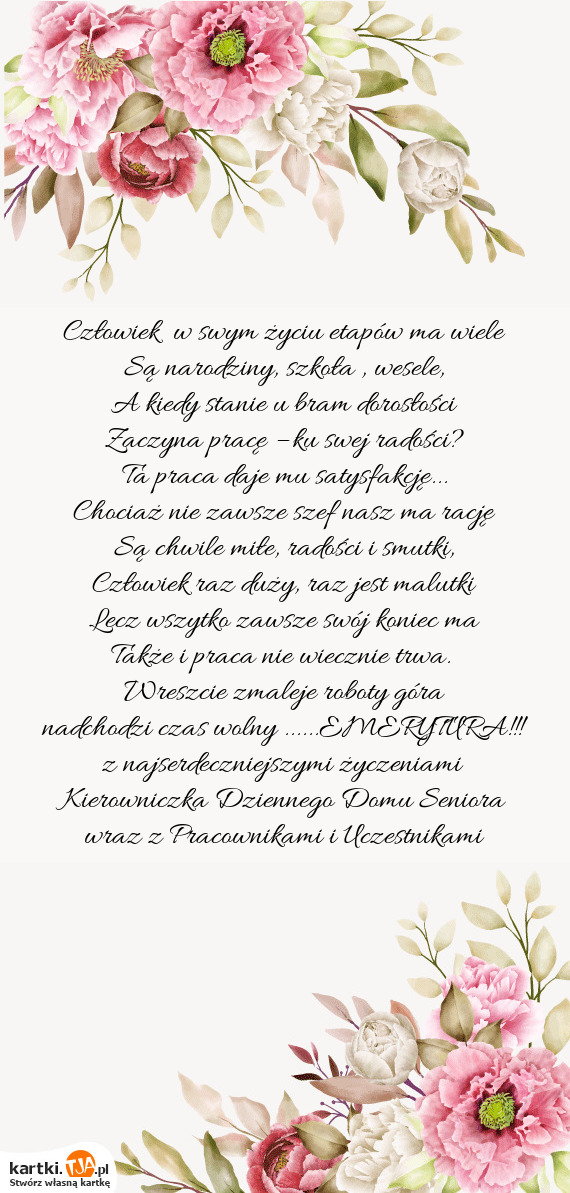 Człowiek w swym życiu etapów ma wiele
Są narodziny, szkoła , wesele,
A kiedy stanie u bram dorosłości
Zaczyna pracę – ku swej radości?
Ta praca daje mu satysfakcję...
Chociaż nie zawsze szef nasz ma rację
Są chwile miłe, radości i smutki,
Człowiek raz duży, raz jest malutki
Lecz wszytko zawsze swój koniec ma
Także i praca nie wiecznie trwa.
Wreszcie zmaleje roboty góra
nadchodzi czas wolny ......EMERYTURA!!!
z najserdeczniejszymi życzeniami
Kierowniczka Dziennego Domu Seniora
wraz z Pracownikami i Uczestnikami
kartki.TJA.pl
Stwórz własną kartkę